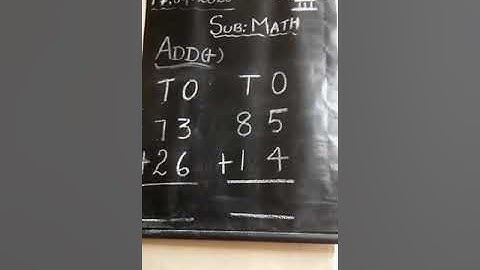 SUB: MATH
ADD(+)
T O T O
73 85
+26 +14